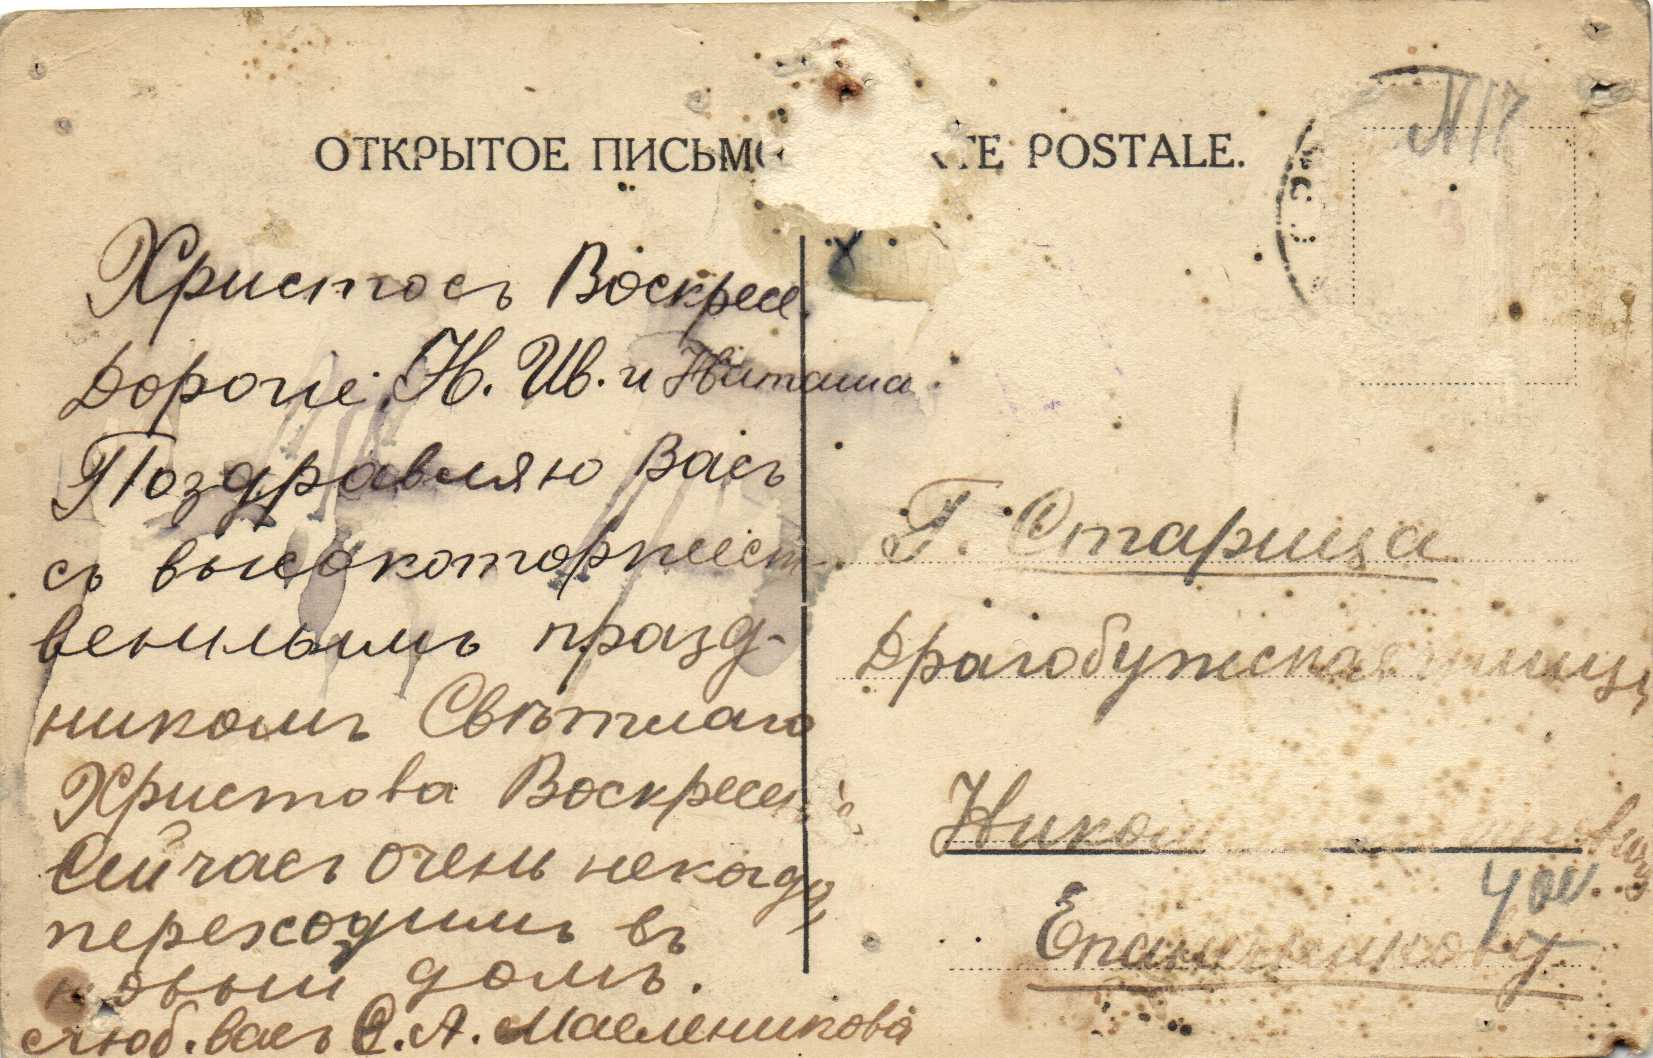 ОТКРЫТОЕ ПИСЬМО RTE POSTALE.
N 17
Христосъ Воскресе.
Дорогіе Н. Ив. и Наташа
Поздравляю Васъ
съ высокоторжест
веннымъ празд-
никомъ Свѣтлаго
Христова Воскресен
Сейчасъ очень некогда
переходимъ въ
новый домъ.
Люб. васъ С. А. Масленикова
Г. Старица
Драгобужская
Никол
Епанченкову